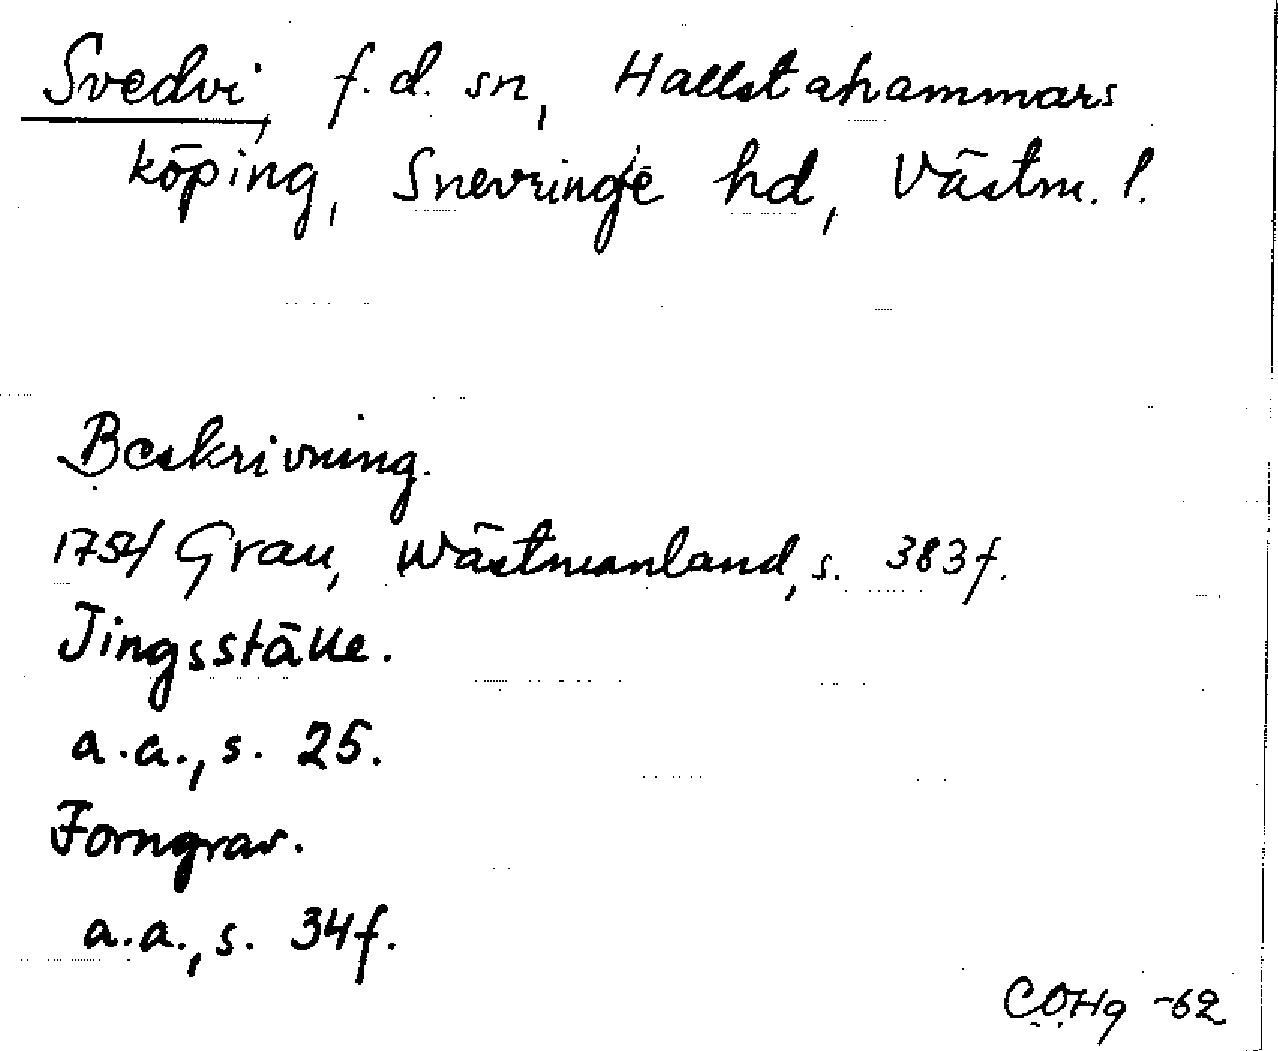 Svedvi, f.d. sn, Hallstahammars
köping, Snevringe hd, Västm. l.
Beskrivning.
1754/ Grau, Wästmanland, s. 383f.
Tingsställe.
a.a., s. 25.
Forngrav.
a.a., s. 34f.
COHg -62